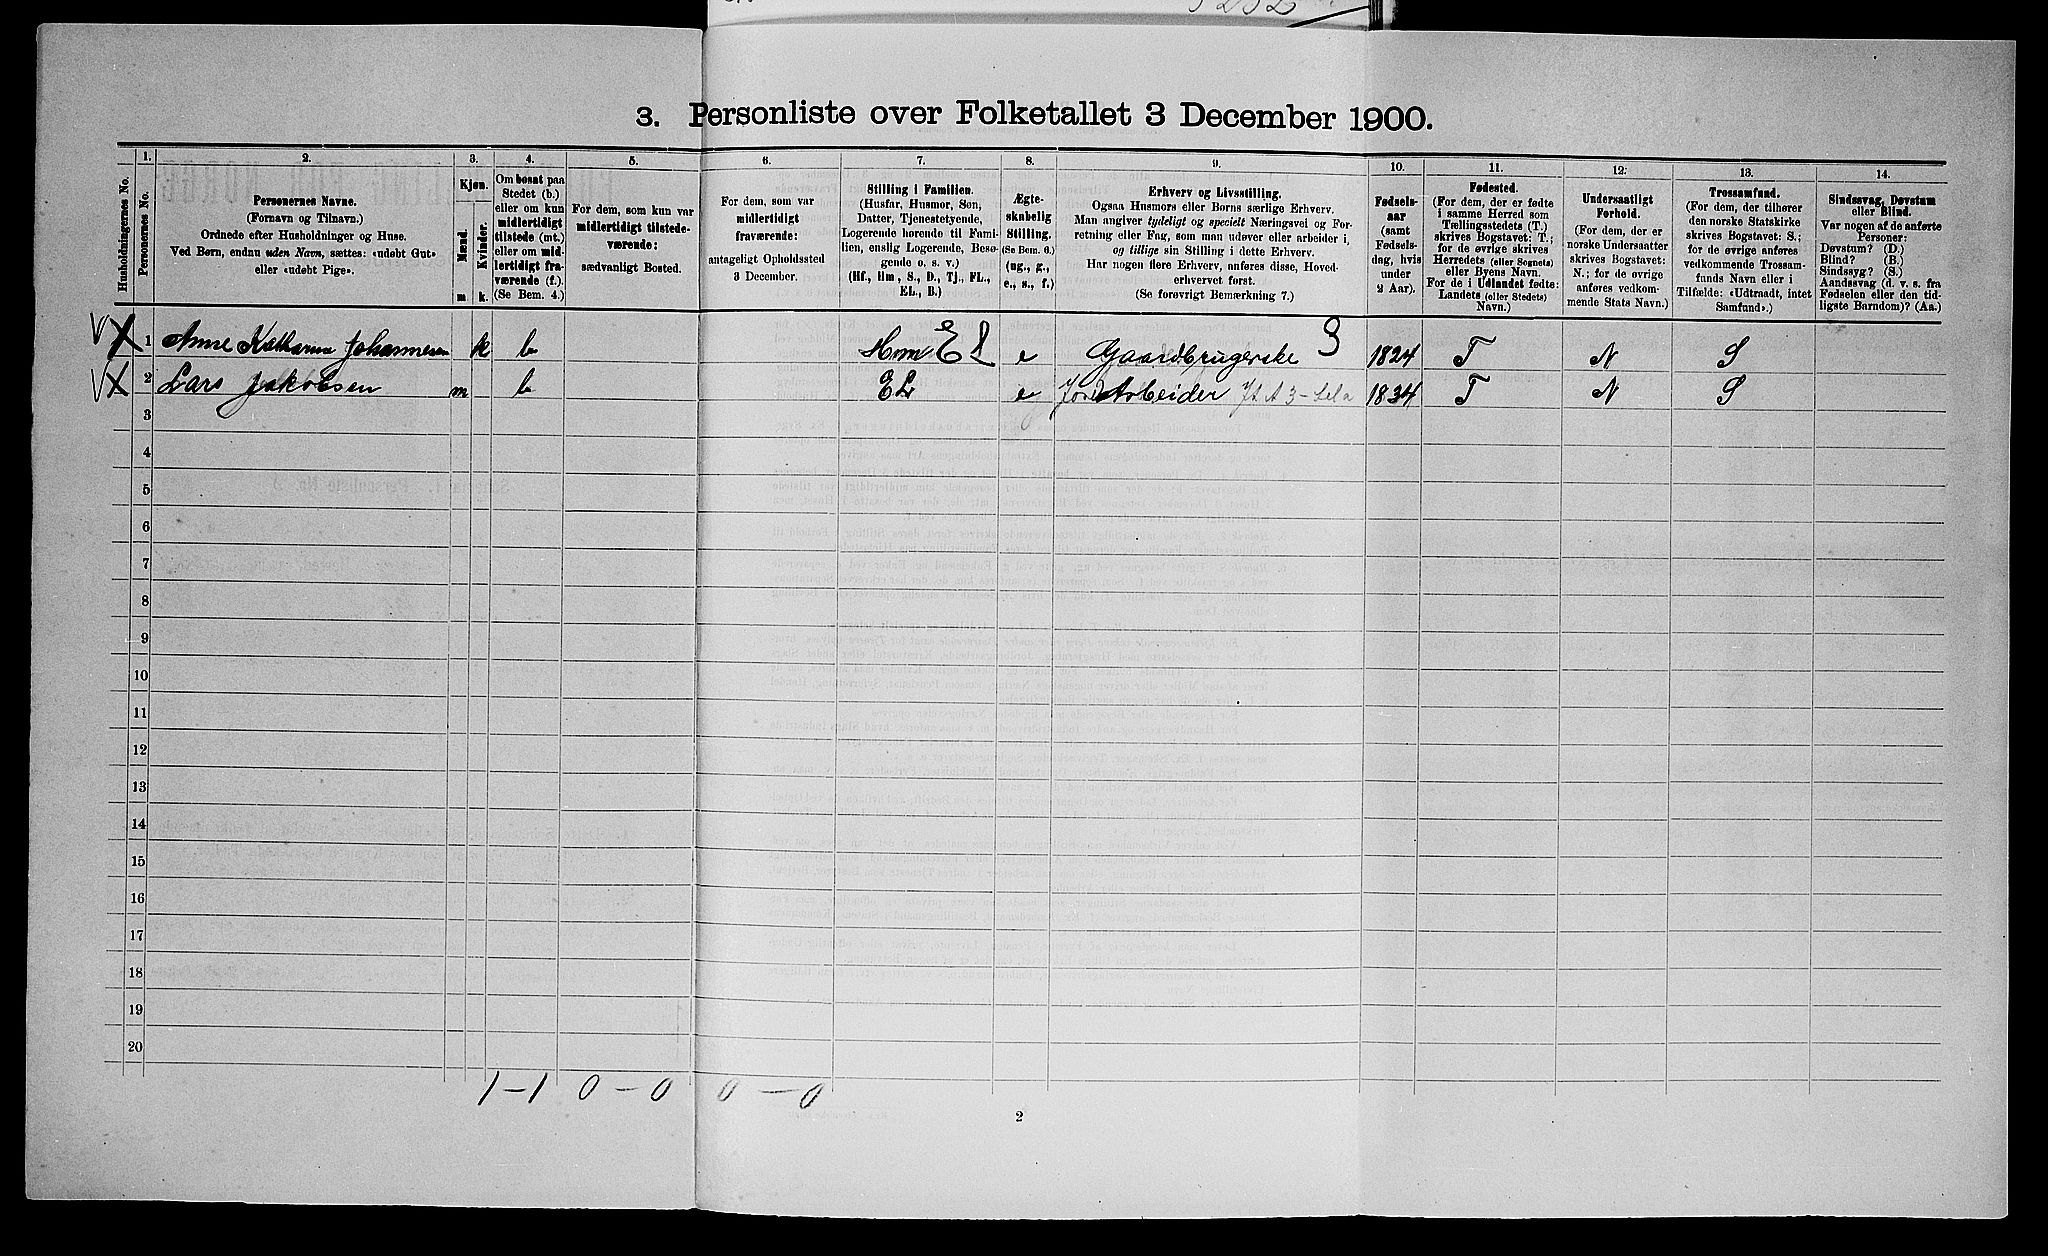 3. Personliste over Folketallet 3 December 1900.
Husholdningernes No.
1.
Personernes No.
2.
Personernes Navne.
(Fornavn og Tilnavn.)
Ordnede efter Husholdninger og Huse.
Ved Børn, endnu uden Navn, sættes: «udøbt Gut»
eller «udøbt Pige».
3.
Kjøn.
Mænd.
Kvinder.
m
k.
4.
Om bosat paa
Stedet (b.)
eller om kun
midlertidigt
tilstede (mt.)
eller om mid-
lertidigt fra-
værende (f.).
(Se Bem. 4.)
5.
For dem, som kun var
midlertidigt tilstede-
værende:
sædvanligt Bosted.
6.
For dem, som var
midlertidigt
fraværende:
antageligt Opholdssted
3 December.
7.
Stilling i Familien.
(Husfar, Husmor, Søn,
Datter, Tjenestetyende,
Logerende hørende til Fami-
lien, enslig Logerende, Besø-
gende o. s. v.)
(Hf., Hm., S., D., Tj., FL.,
EL., B.)
8.
Ægte-
skabelig
Stilling.
(Se Bem. 6.)
(ug., g.,
e., s., f.)
9.
Erhverv og Livsstilling.
Ogsaa Husmors eller Børns særlige Erhverv.
Man angiver tydeligt og specielt Næringsvei og For-
retning eller Fag, som man udøver eller arbeider i,
og tillige sin Stilling i dette Erhverv.
Har nogen flere Erhverv, anføres disse, Hoved-
erhvervet først.
(Se forøvrigt Bemærkning 7.)
10.
Fødsels-
aar
(samt
Fødsels-
dag, hvis
under
2 Aar).
11.
Fødested.
(For dem, der er fødte
i samme Herred som
Tællingsstedets (T.)
skrives Bogstavet: T.;
for de øvrige skrives
Herredets (eller Sognets)
eller Byens Navn.
For de i Udlandet fødte:
Landets (eller Stedets)
Navn.)
12.
Undersaatligt
Forhold.
(For dem, der er
norske Undersaatter
skrives Bogstavet:
N.; for de øvrige
anføres vedkom-
mende Stats Navn.)
13.
Trossamfund.
(For dem, der tilhører
den norske Statskirke
skrives Bogstavet: S.;
for de øvrige anføres
vedkommende Trossam-
funds Navn eller i
Tilfælde: «Udtraadt, intet
Samfund».)
14.
Sindssvag, Døvstum
eller Blind.
Var nogen af de anførte
Personer:
Døvstum? (D.)
Blind? (B.)
Sindssyg? (S.)
Aandssvag (d. v. s. fra
Fødselen eller den tid-
ligste Barndom)? (Aa.)
1 Anne Katharina Johannesen k b Hm EL e Gaardbrugerske 1824 T N S
2 Lars Jakobsen m b EL e Arbeider 1834 T N S
3
4
5
6
7
8
9
10
11
12
13
14
15
16
17
18
19
20
1-1 0-0 0-0
2